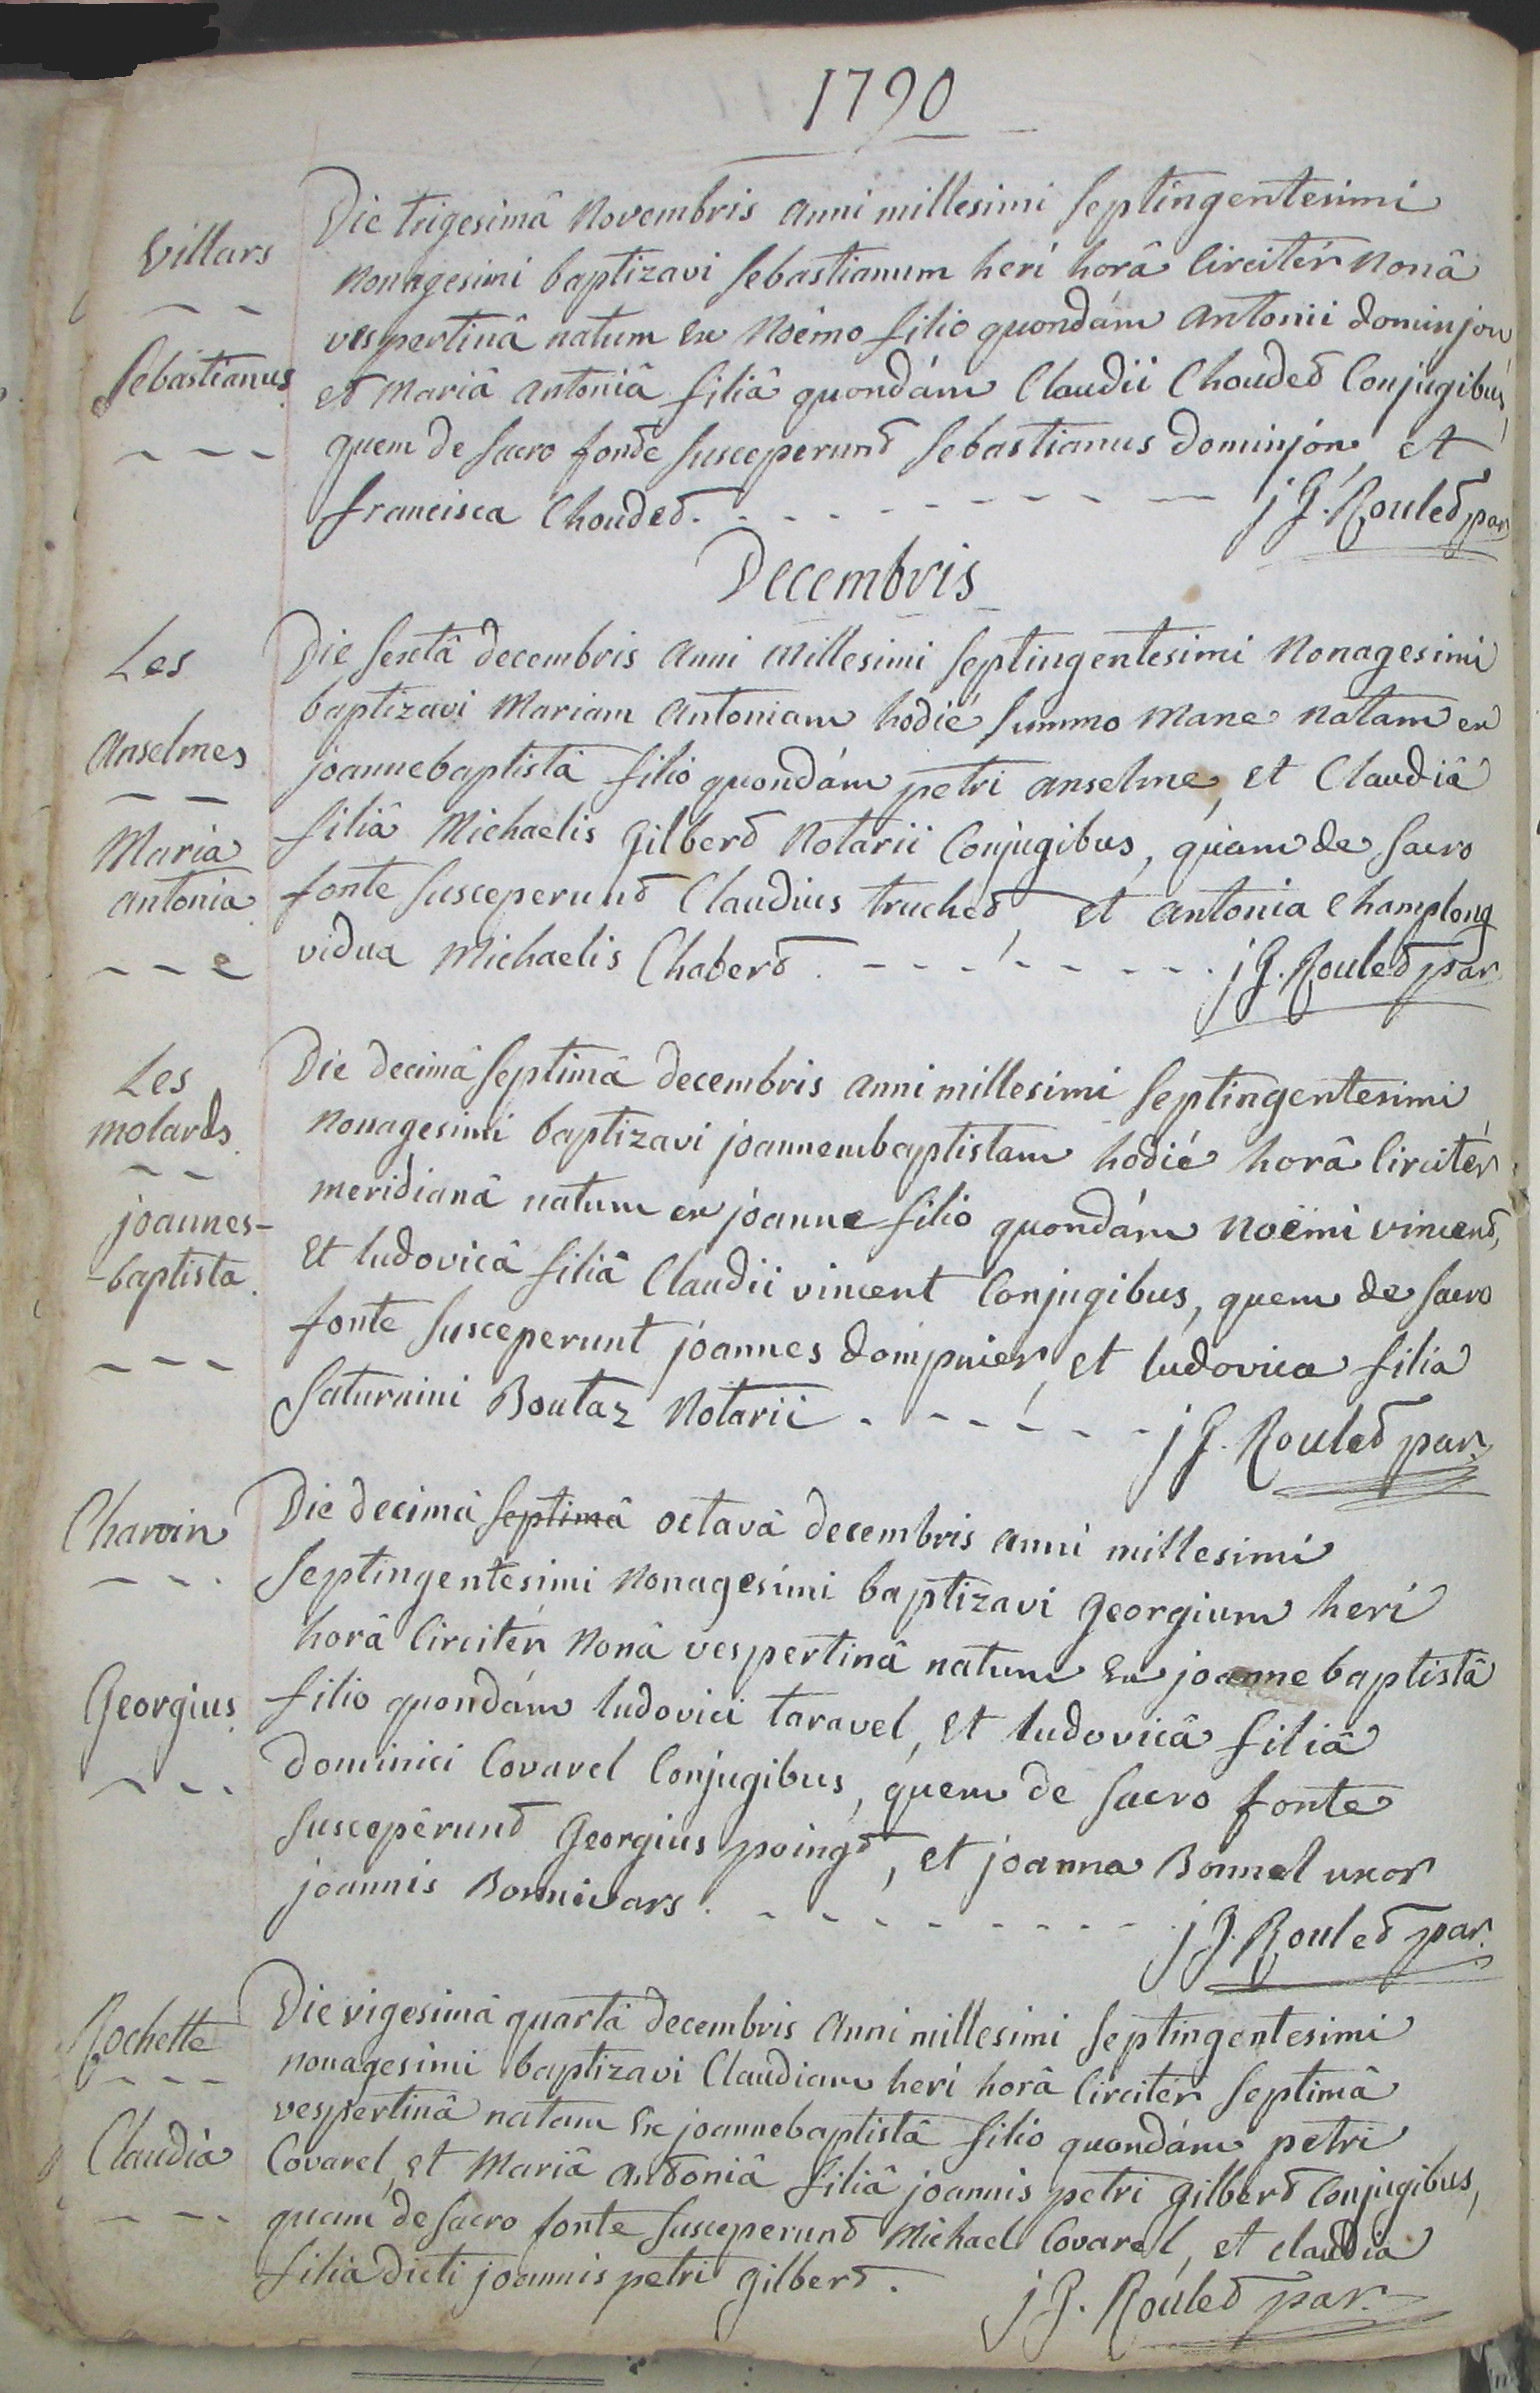 1790
Villars
Sebastianus
Die trigesimâ novembris anni millesimi septingentesimi
nonagesimi baptizavi sebastianum herí horâ circitér nonâ
vespertinâ natum ex Noêmo filio quondám antonii dominjon
et mariâ antoniâ filiâ quondám Claudii Choudet Conjugibus,
quem de sacro fonte susceperunt sebastianus dominjon, et
francisca Choudet. j G. Roulet par
Decembris
Les
Anselmes
Maria
antonia
Die sextâ decembris anni millesimi septingentesimi nonagesimi
baptizavi Mariam antoniam hodié summo mane natam ex
joannebaptistâ filio quondám petri anselme, et Claudiâ
filiâ Michaelis Gilbert Notarii Conjugibus, quam de sacro
fonte susceperunt Claudius truchet, et antonia Champlong
vidua Michaelis Chabert. j G. Roulet par
Les
molards.
joannes-
-baptista.
Die decimâ septimâ decembris anni millesimi septingentesimi
nonagesimi baptizavi joannembaptistam hodié horâ circitér
meridianâ natum ex joanne filio quondám noëmi vincent,
et ludovicâ filiâ Claudii vincent Conjugibus, quem de sacro
fonte susceperunt joannes dompnier, et ludovica filia
Saturnini Boutaz Notarii. j G. Roulet par.
Charvin
Georgius.
Die decimâ septimâ octavâ decembris anni millesimi
septingentesimi nonagesimi baptizavi Georgium herí
horâ circitér nonâ vespertinâ natum ex joanne baptistâ
filio quondám ludovici taravel, et ludovicâ filiâ
dominici Covarel Conjugibus, quem de sacro fonte
susceperunt Georgius poingt, et joanna Bonnel uxor
joannis Bonnivars. j G. Roulet par.
Rochette
Claudia
Die vigesimâ quartâ decembris anni millesimi septingentesimi
nonagesimi baptizavi Claudiam herí horâ circitér septimâ
vespertinâ natam ex joannebaptistâ filio quondám petri
Covarel, et Mariâ antoniâ filiâ joannis petri gilbert Conjugibus,
quam de sacro fonte susceperunt Michael Covarel, et claudia
filia dicti joannis petri gilbert. j G. Roulet par.